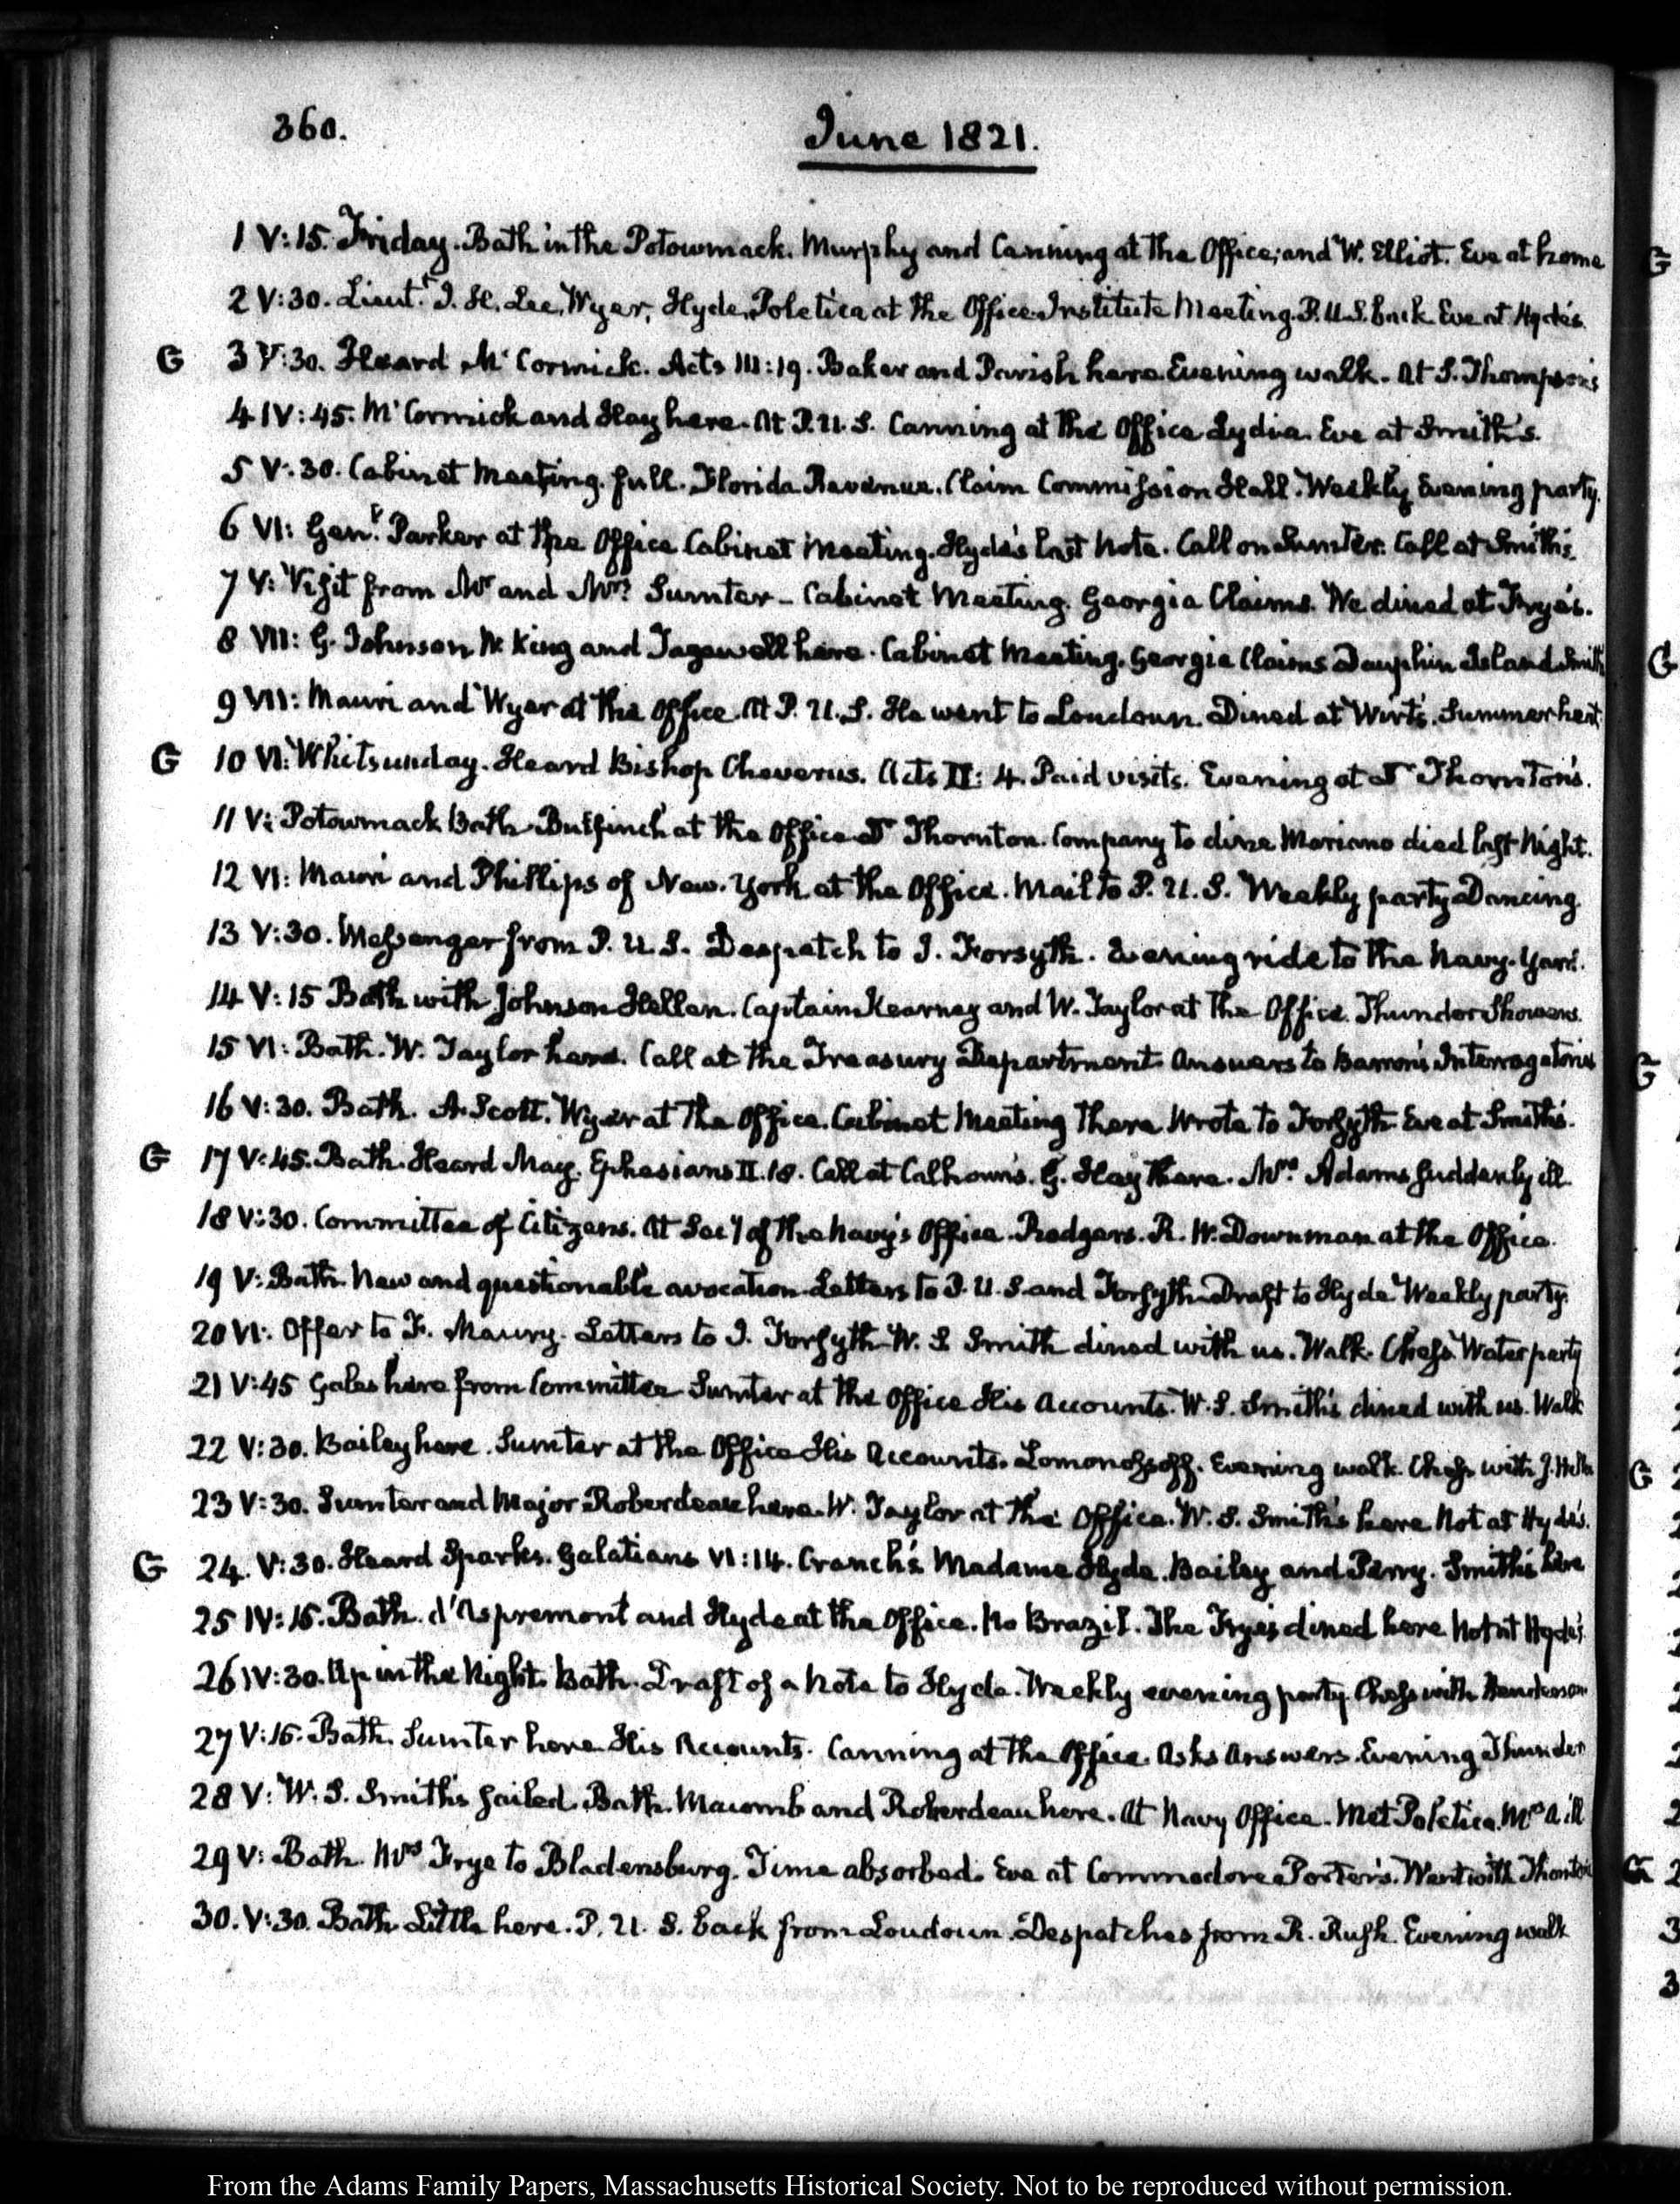 360.
June 1821.
1 V:15. Friday. Bath in the Potowmack. Murphy and Canning at the Office; and W. Elliot. Eve at home
2 V:30. Lieut.t J. H. Lee, Wyer, Hyde, Poletica at the Office. Institute Meeting. P.U.S. back Eve at Hyde's
G 3 V:30. Heard McCormick. Acts III:19. Baker and Parish here. Evening walk. At S. Thompson's
4 IV:45. McCormick and Hay here. At P.U.S. Canning at the Office Lydia. Eve at Smith's.
5 V:30. Cabinet Meeting. full. Florida Revenue. Claim Commission Hall. Weekly Evening party.
6 VI: Gen.l Parker at the Office Cabinet Meeting. Hyde's last Note. Call on Sumter. Call at Smith's.
7 V: Visit from Mr and Mrs Sumter - Cabinet Meeting. Georgia Claims. We dined at Frye's.
8 VII: G. Johnson W. King and Tazewell here. Cabinet Meeting. Georgia Claims Dauphin Island Smith
9 VII: Mauri and Wyer at the Office. At P.U.S. He went to Loudoun. Dined at Wirt's. Summer heat
G 10 VI: Whitsunday. Heard Bishop Cheverus. Acts II: 4. Paid visits. Evening at Dr Thornton's.
11 V: Potowmack Bath. Bulfinch at the Office. Dr Thornton. Company to dine Mariano died last Night.
12 VI: Mauri and Phillips of New-York at the Office. Mail to P.U.S. Weekly party Dancing.
13 V:30. Messenger from P.U.S. Despatch to J. Forsyth. Evening ride to the Navy-Yard.
14 V:15 Bath with Johnson Hellen. Captain Kearney and W. Taylor at the Office. Thunder Showers.
15 VI: Bath. W. Taylor here. Call at the Treasury Department. Answers to Barron's Interrogatories
16 V:30. Bath. A. Scott. Wyer at the Office. Cabinet Meeting There. Wrote to Forsyth. Eve at Smith's.
G 17 V:45. Bath. Heard May. Ephesians II.18. Call at Calhoun's. G. Hay there. Mrs Adams suddenly ill.
18 V:30. Committee of Citizens. At Secy of the Navy's Office. Rodgers. R. W. Downman at the Office.
19 V: Bath. New and questionable avocation. Letters to P.U.S. and Forsyth. Draft to Hyde. Weekly party.
20 VI: Offer to F. Maury. Letters to J. Forsyth. W. S. Smith dined with us. Walk. Chess. Water party
21 V:45 Gales here from Committee Sumter at the Office His Accounts. W. S. Smith's dined with us. Walk
22 V:30. Bailey here. Sumter at the Office His Accounts. Lomonossoff. Evening walk. Chess with J. Hellen
23 V:30. Sumter and Major Roberdeau here. W. Taylor at the Office. W. S. Smith's here Not at Hyde's.
G 24. V:30. Heard Sparks. Galatians VI:14. Cranch's Madame Hyde. Bailey and Perry. Smith's here
25 IV:15. Bath. d'Aspremont and Hyde at the Office. No Brazil. The Frye's dined here Not at Hyde's
26 IV:30. Up in the Night. Bath. Draft of a Note to Hyde. Weekly evening party. Chess with Henderson
27 V:15. Bath. Sumter here His Accounts. Canning at the Office. Asks Answers. Evening Thunder
28 V: W. S. Smith's sailed. Bath. Macomb and Roberdeau here. At Navy Office. Met Poletica. Mrs A ill
29 V: Bath. Mrs Frye to Bladensburg. Time absorbed. Eve at Commodore Porter's. Went with Thornton
30. V:30. Bath Little here. P.U.S. back from Loudoun. Despatches from R. Rush. Evening walk
From the Adams Family Papers, Massachusetts Historical Society. Not to be reproduced without permission.